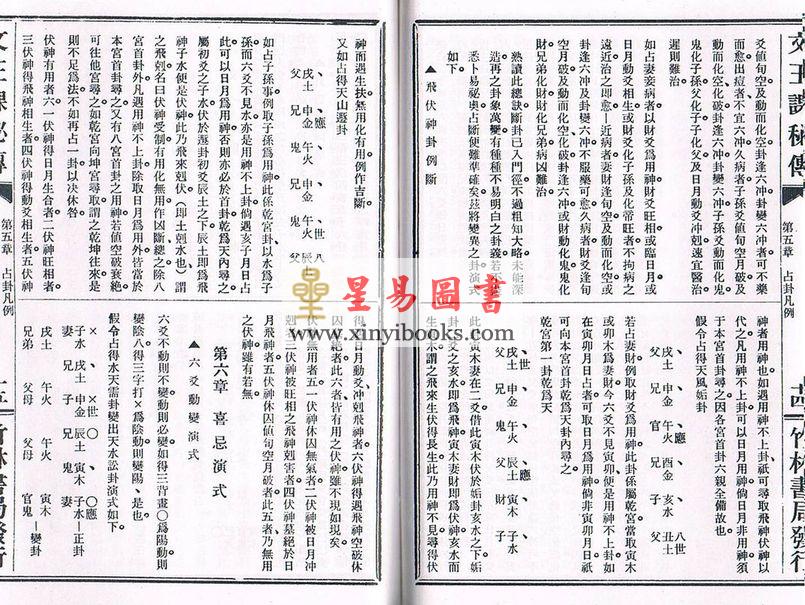 爻値旬空及動而化空卦逢六冲卦變六冲者可不藥
而愈出痘者不宜六冲久病者子孫爻値旬空月破及
動而化空化破卦逢六冲卦變六冲子孫爻動而化鬼
鬼化子孫父化子子化父及日月動爻冲剋速宜醫治
遲則難治
如占妻妾病者以財爻爲用神財爻旺相或臨日月或
日月動爻相生或財爻化子孫及化帝旺者不拘病之
遠近治之即愈
近病者妻財逢旬空及動而化空或
卦逢六冲及卦變六冲不服藥可愈久病者財爻逢旬
空月破及動而化空化破卦逢六冲或財動化鬼鬼化
財兄弟化財財化兄弟病凶難治
熟讀此總訣斷卦已入門徑不過粗知大略未能深
造再之卦象萬變有種種不易明白之卦義若不
悉卜易祕奧占斷便難準確矣茲將變異之卦演式
如下
▲飛伏神卦例斷
神者用神也如遇用神不上卦祗可尋取飛神伏神以
代之凡用神不上卦可以日月用神倘日月非用神須
于本宮首卦尋之因各宮首卦六親全備故也
假令占得天風姤卦
父 戌土
兄 申金
官 午火 應
兄 酉金
子 亥水
父 丑土 世 八
若占妻財例取財爻爲用神此卦係屬乾宮當取寅木
或卯木爲妻財今六爻不見寅卯便是用神不上卦如
在寅卯月日占者可取日月爲用神倘非寅卯月日祇
可向本宮首卦乾爲天卦尋之
乾宮第一卦乾爲天
父 戌土
兄 申金
鬼 午火
父 辰土
財 寅木
子 子水
此卦寅木妻在二爻借此寅木伏於姤卦亥水之下姤
卦二爻之亥水即爲飛神寅木妻財即爲伏神亥水而
生寅木謂之飛來生伏伏得長生此乃用神不見尋得伏
神而遇生扶無用化有用例作吉斷
又如占得天山遯卦
父 戌土
兄 申金 應
鬼 午火
兄 申金
鬼 午火 世
父 辰土 八
如占子孫事例取子孫爲用神此係乾宮卦以水爲子
孫而六爻不見水亦是用神不上卦倘遇亥子月日占
此可以日月爲用神否則亦必於首卦乾爲天內尋之
屬初爻之子水伏於遯卦初爻辰土之下辰土即爲飛
神子水便是伏神此乃飛來剋伏(即土剋水也)謂
之飛剋名曰伏神受制有用化無用作凶斷總之除八
宮首卦外凡遇用神不上卦除取日月爲用外皆當於
本宮首卦尋之又有八宮首卦之用神若値空破衰絶
可往他宮尋之如乾宮向坤宮尋取謂之乾坤往來是
則不足爲法不如再占一卦以決休咎
伏神有用者六一伏神得日月生合者二伏神旺相者
三伏神得飛神相生者四伏神得動爻相生者五伏神
得日月動爻冲剋飛神者六伏神得遇飛神空破休
囚墓絕者此六者皆有用之伏神雖不現如現矣
伏神無用者五一伏神休囚無氣者二伏神被日月冲
剋三伏神被旺相之飛神剋害者四伏神墓絕於日
月飛神者五伏神休囚値旬空月破者此五者乃無用
之伏神雖有若無
第六章 喜忌演式
▲六爻動變演式
六爻不動則不變動則必變如得三背畫○爲陽動則
變陰八得三字打×爲陰動則變陽、是也
假令占得水天需卦變出天水訟卦演式如下
子水 戌土 申金 辰土 寅木 子水—正卦
妻 兄 子 兄 鬼 妻
戌土 午火 午火 寅木—變卦
兄弟 父母 父母 官鬼
文王課秘傳
第五章 占卦凡例
十四
竹林書局發行
文王課秘傳
第五章 占卦凡例
十五
竹林書局發行
星易圖書
www.xinyibooks.com